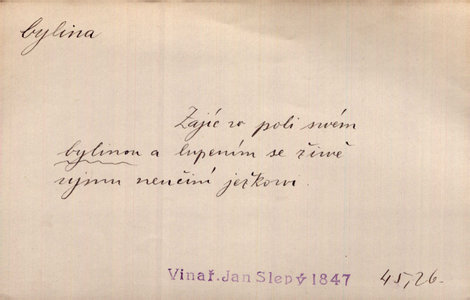 bylina
Zajíc w poli swém
bylinou a lupením se žiwě
újmu nenčiní ježkowi.
Vinař. Jan Slepý 1847 45,26.